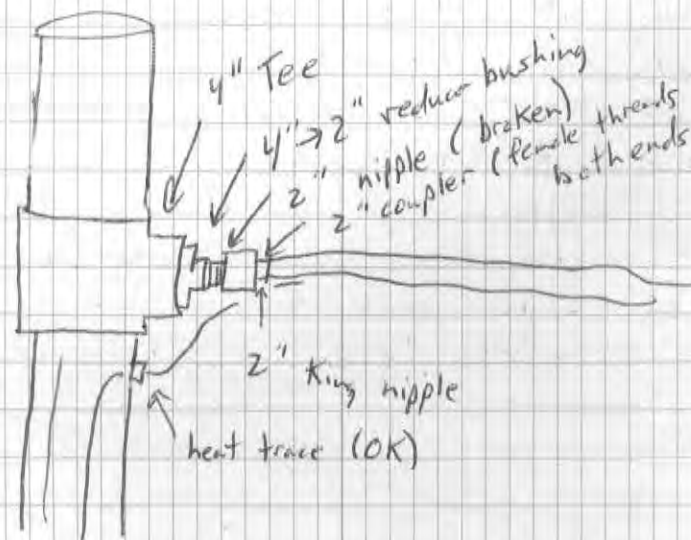 4" Tee
4"→2" reducer bushing
2" nipple (broken)
2" coupler (female threads
both ends
2" King nipple
heat trace (OK)